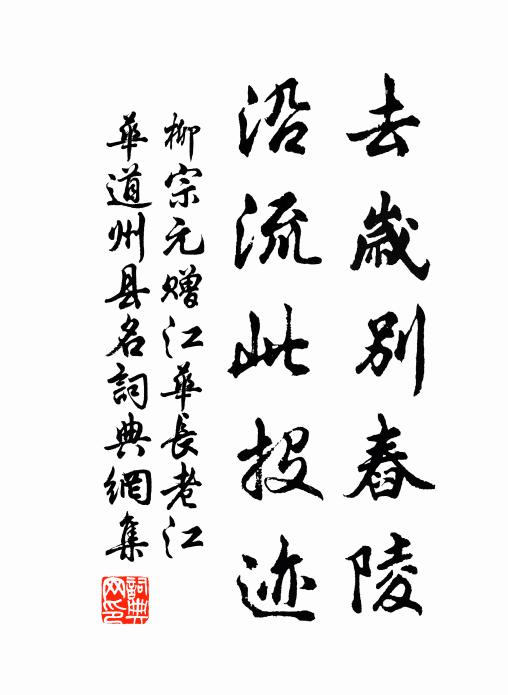 去歲別舂陵
沿流此投迹
柳宗元赠江華長老江
華道州县名詞典網集
詞典网印